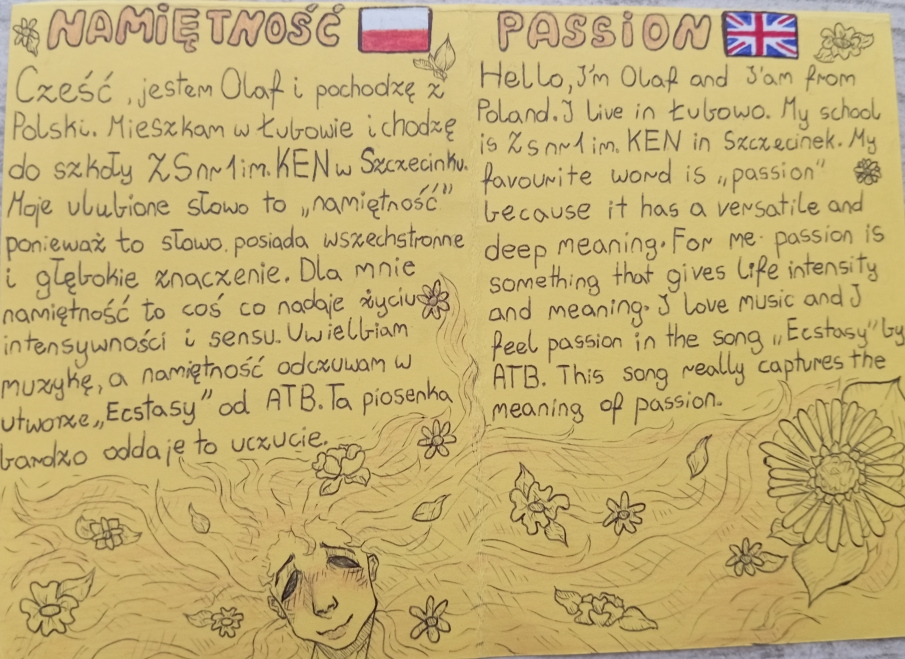 NAMIĘTNOŚĆ
Cześć, jestem Olaf i pochodzę z
Polski. Mieszkam w Łubowie i chodzę
do szkoły ZSnr1 im. KEN w Szczecinku.
Moje ulubione słowo to „namiętność”
ponieważ to słowo posiada wszechstronne
i głębokie znaczenie. Dla mnie
namiętność to coś co nadaje życiu
intensywności i sensu. Uwielbiam
muzykę, a namiętność odczuwam w
utworze „Ecstasy” od ATB. Ta piosenka
bardzo oddaje to uczucie.
PASSION
Hello, I'm Olaf and I'am from
Poland. I live in Łubowo. My school
is ZSnr1 im. KEN in Szczecinek. My
favourite word is „passion”
because it has a versatile and
deep meaning. For me passion is
something that gives life intensity
and meaning. I love music and I
feel passion in the song „Ecstasy” by
ATB. This song really captures the
meaning of passion.